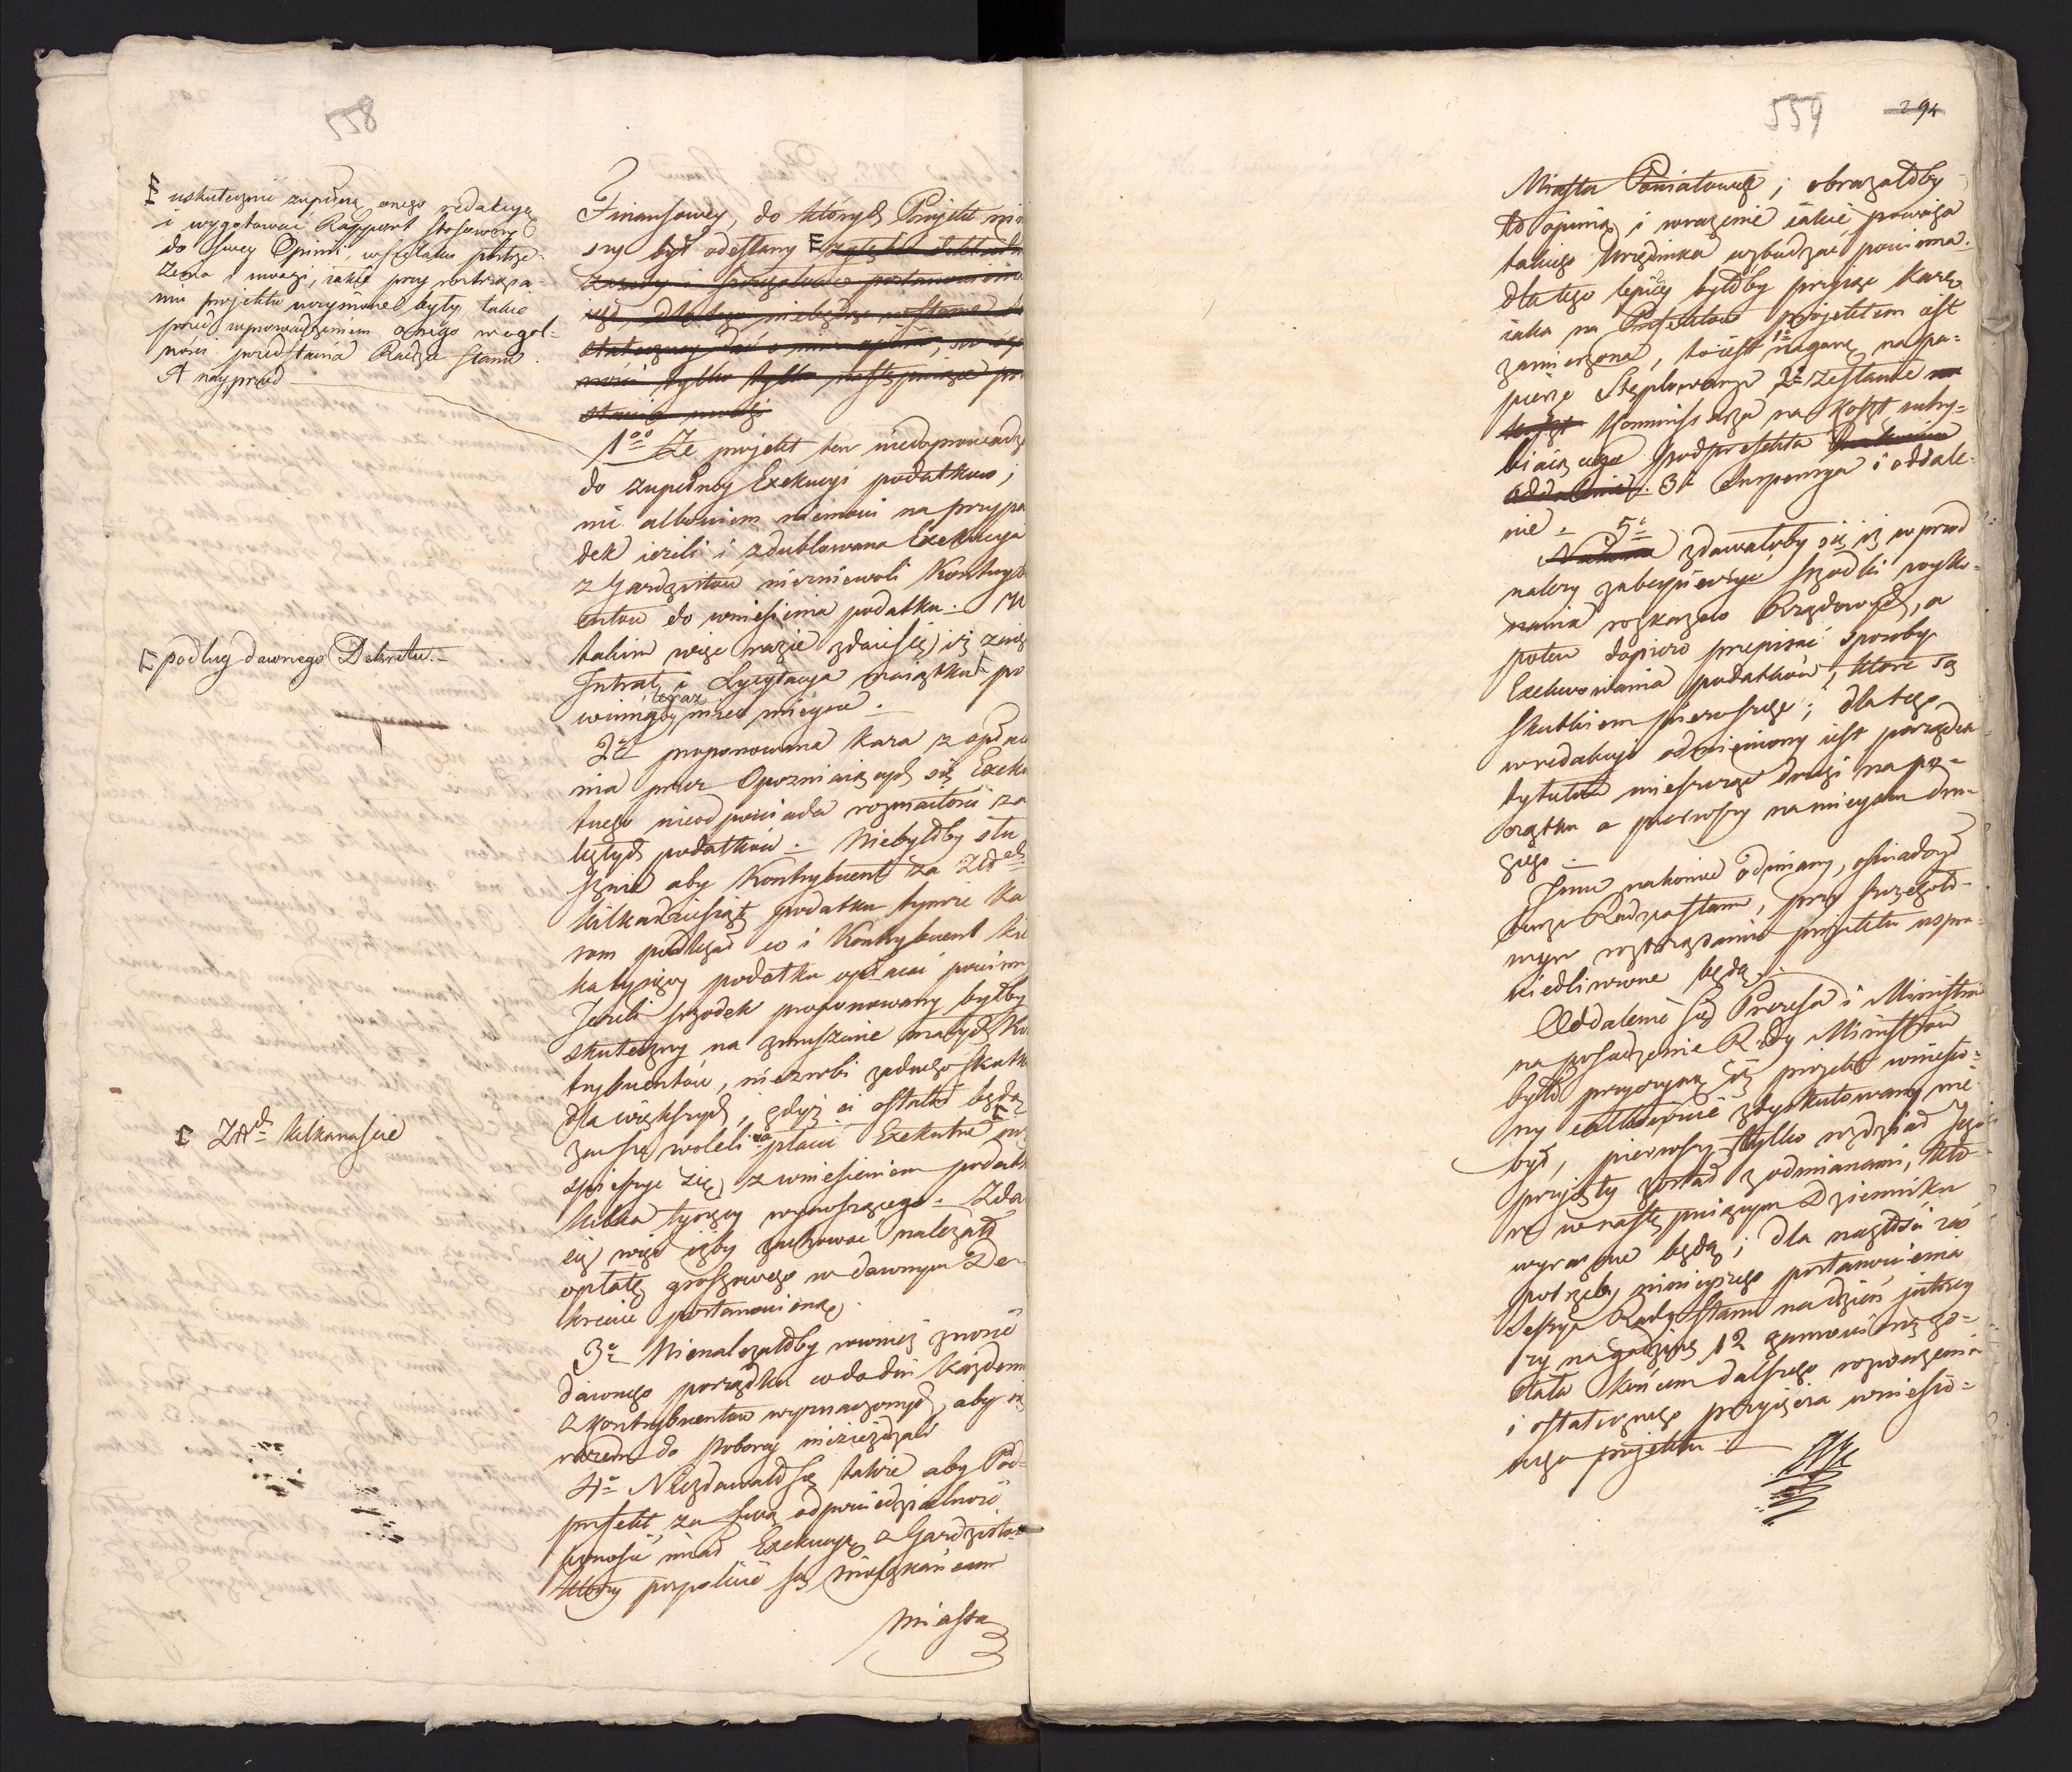 558
F uskutecznić zupełną onego redakcyę
i wygotować Rapport stosowny
do swey Opinii, wszelako postrze-
żenia i uwagi, iakie przy roztrząsa-
niu projektu uczynione były, takie
przed wprowadzeniem onego w ogol-
ności przedstawia Radzie Stanu.
A nayprzód
podług dawnego Dekretu.
Złch kilkanaście
Finansowey, do których Projekt
był odesłany
1o Że projekt ten niedoprowadza
do zupełney Exekucyi podatków;
nic albowiem niemówi na przypa
dek ieżeli i zdublowana Exekucya
z Gardzistów nierniewoli Kontryb
entów do wniesienia podatku. W
takim więc razie zdaie się iż zaię
Intrat i Lycytacya maiątku po
teraz
winnaby mieć mieysce.
2o proponowana kara z opłace
nia przez Opozniaiących się Exeku
tnego nieodpowiada rozmaitości za
ległych podatków. Niebyłoby słu
sznie aby Kontrybuent za Złch
kilkadziesiąt podatku tymże ka
rom podlegał co i Kontrybuent kil
ka tysięcy podatku opłacać powinn
Jeżeli srzodek proponowany byłby
skuteczny na zmuszenie małych Kon
trybuentów, niezrobi żadnego skutk
dla większych, gdyż ci ostatni będą
zawsze woleli płacić Exekutne
spieszyć się z wniesieniem podatk
kilka tysięcy wynoszącego. Zda
się więc iżby zachować należało
opłatę groszowego w dawnym De-
krecie postanowioną.
3o Nienależałoby rownież znosić
dawnego porządku co do dni każdemu
z Kontrybuentów wyznaczonych, aby
razem do Poborcy nieziezdżali
4o Niezdawało się także aby Pod-
prefekt za swą odpowiedzialność
ponosić miał Exekucyę z Gardzistów
który pospolicie są mieszkańcem
miasta
559
294
Miasta Powiatowego; obrażałoby
to opinią i wrażenie iakie powaga
takiego Urzędnika wzbudzać powinna.
dla tego lepiey byłoby przyiąć karę
iaka na Prefektów projektem iest
zamierzona, to iest 1o naganę na pa-
pierze Stęplowanym 2o Zesłanie
Kommissarza na koszt uchy-
biaiącego Podprefekta
3o Suspensya i oddale-
nie.
5o
zdawałoby się iż wprzod
należy zabezpieczyć srzodki wyko-
nania rozkazów Rządowych, a
potem dopiero przepisać sposoby
Exekwowania podatków, które są
skutkiem pierwszego; dla tego
w redakcyi odmieniony iest porządek
tytułów mieszcząc drugi na po-
czątku a pierwszy na mieyscu dru-
giego.
Inne nakoniec odmiany, oświadczy
Radzie Stanu, przy szczegóło-
wym roztrząsaniu projektu uspra-
wiedliwione będą.
Oddalenie się Prezesa i Ministrów
na posiedzenie Rady Ministrów
było przyczyną iż projekt wniesio-
ny całkowicie zdyskutowany nie
był, pierwszy tylko rozdział Jego
przyięty został z odmianami, któ-
re w następuiącym Dzienniku
wyrażone będą; dla nagłości zaś
potrzeby ninieyszego postanowienia
Sessya Rady Stanu na dzień jutrzey
szy na godzinę 12 zamowioną zo-
stała końcem dalszego rozważenia
i ostatecznego przyięcia wniesio-
nego projektu.